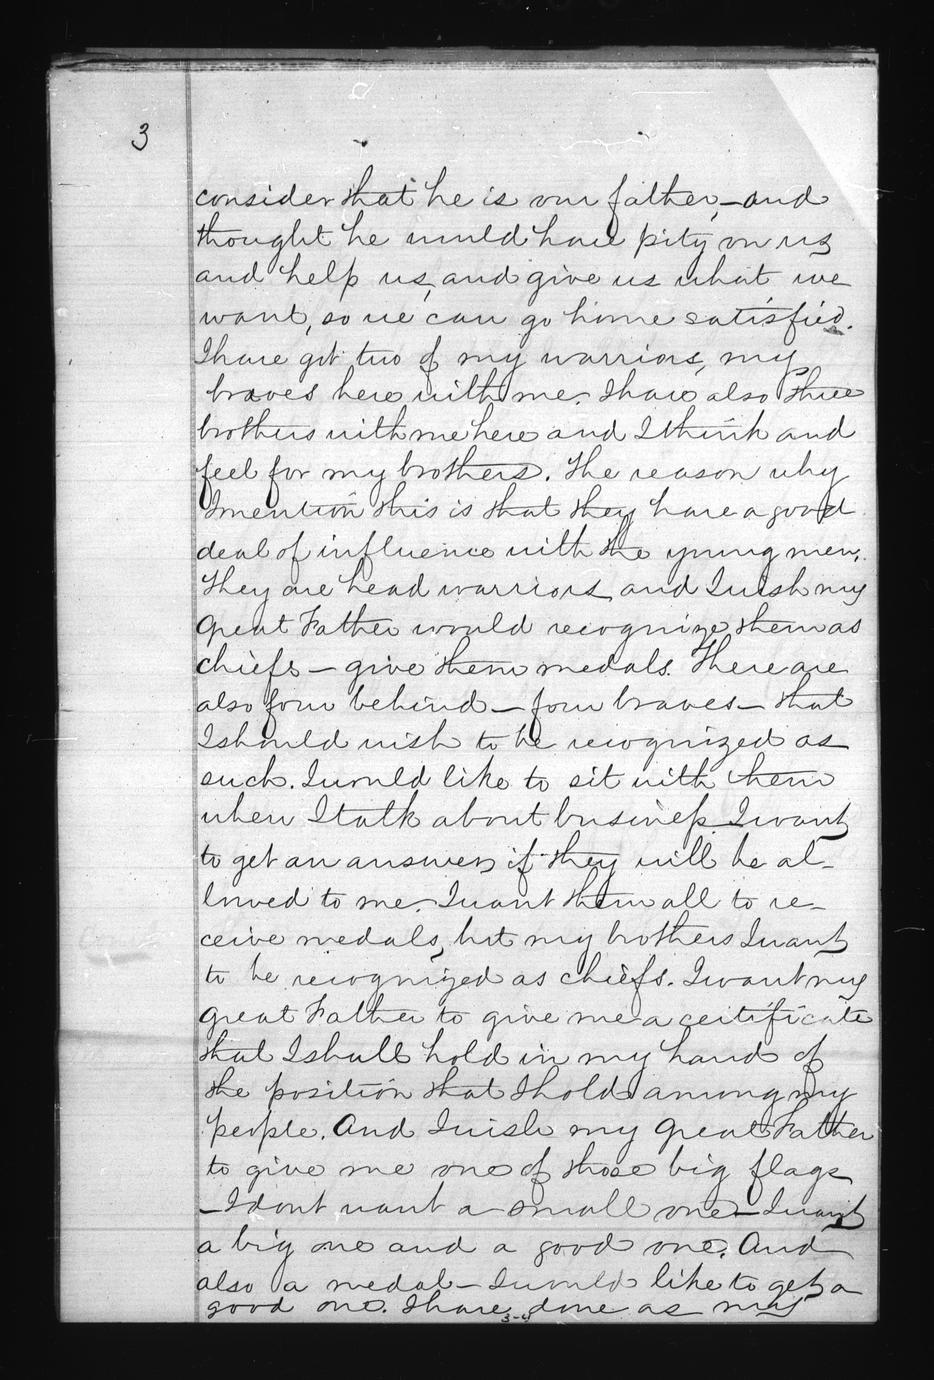 3
consider that he is our father, - and
thought he would have pity on us
and help us, and give us what we
want, so we can go home satisfied.
I have got two of my warriors, my
braves here with me. I have also three
brothers with me here and I think and
feel for my brothers. The reason why
I mention this is that they have a good
deal of influence with the young men.
They are head warriors and I wish my
Great Father would recognize them as
chiefs - give them medals. There are
also four behind - four braves - that
I should wish to be recognized as
such. I would like to sit with them
when I talk about business. I want
to get an answer, if they will be al-
lowed to me. I want them all to re-
ceive medals, but my brothers I want
to be recognized as chiefs. I want my
great Father to give me a certificate
that I shall hold in my hand of
the position that I hold among my
people. And I wish my Great Father
to give me one of those big flags
- I dont want a small one - I want
a big one and a good one. And
also a medal - I would like to get a
good one. I have done as my
3-4